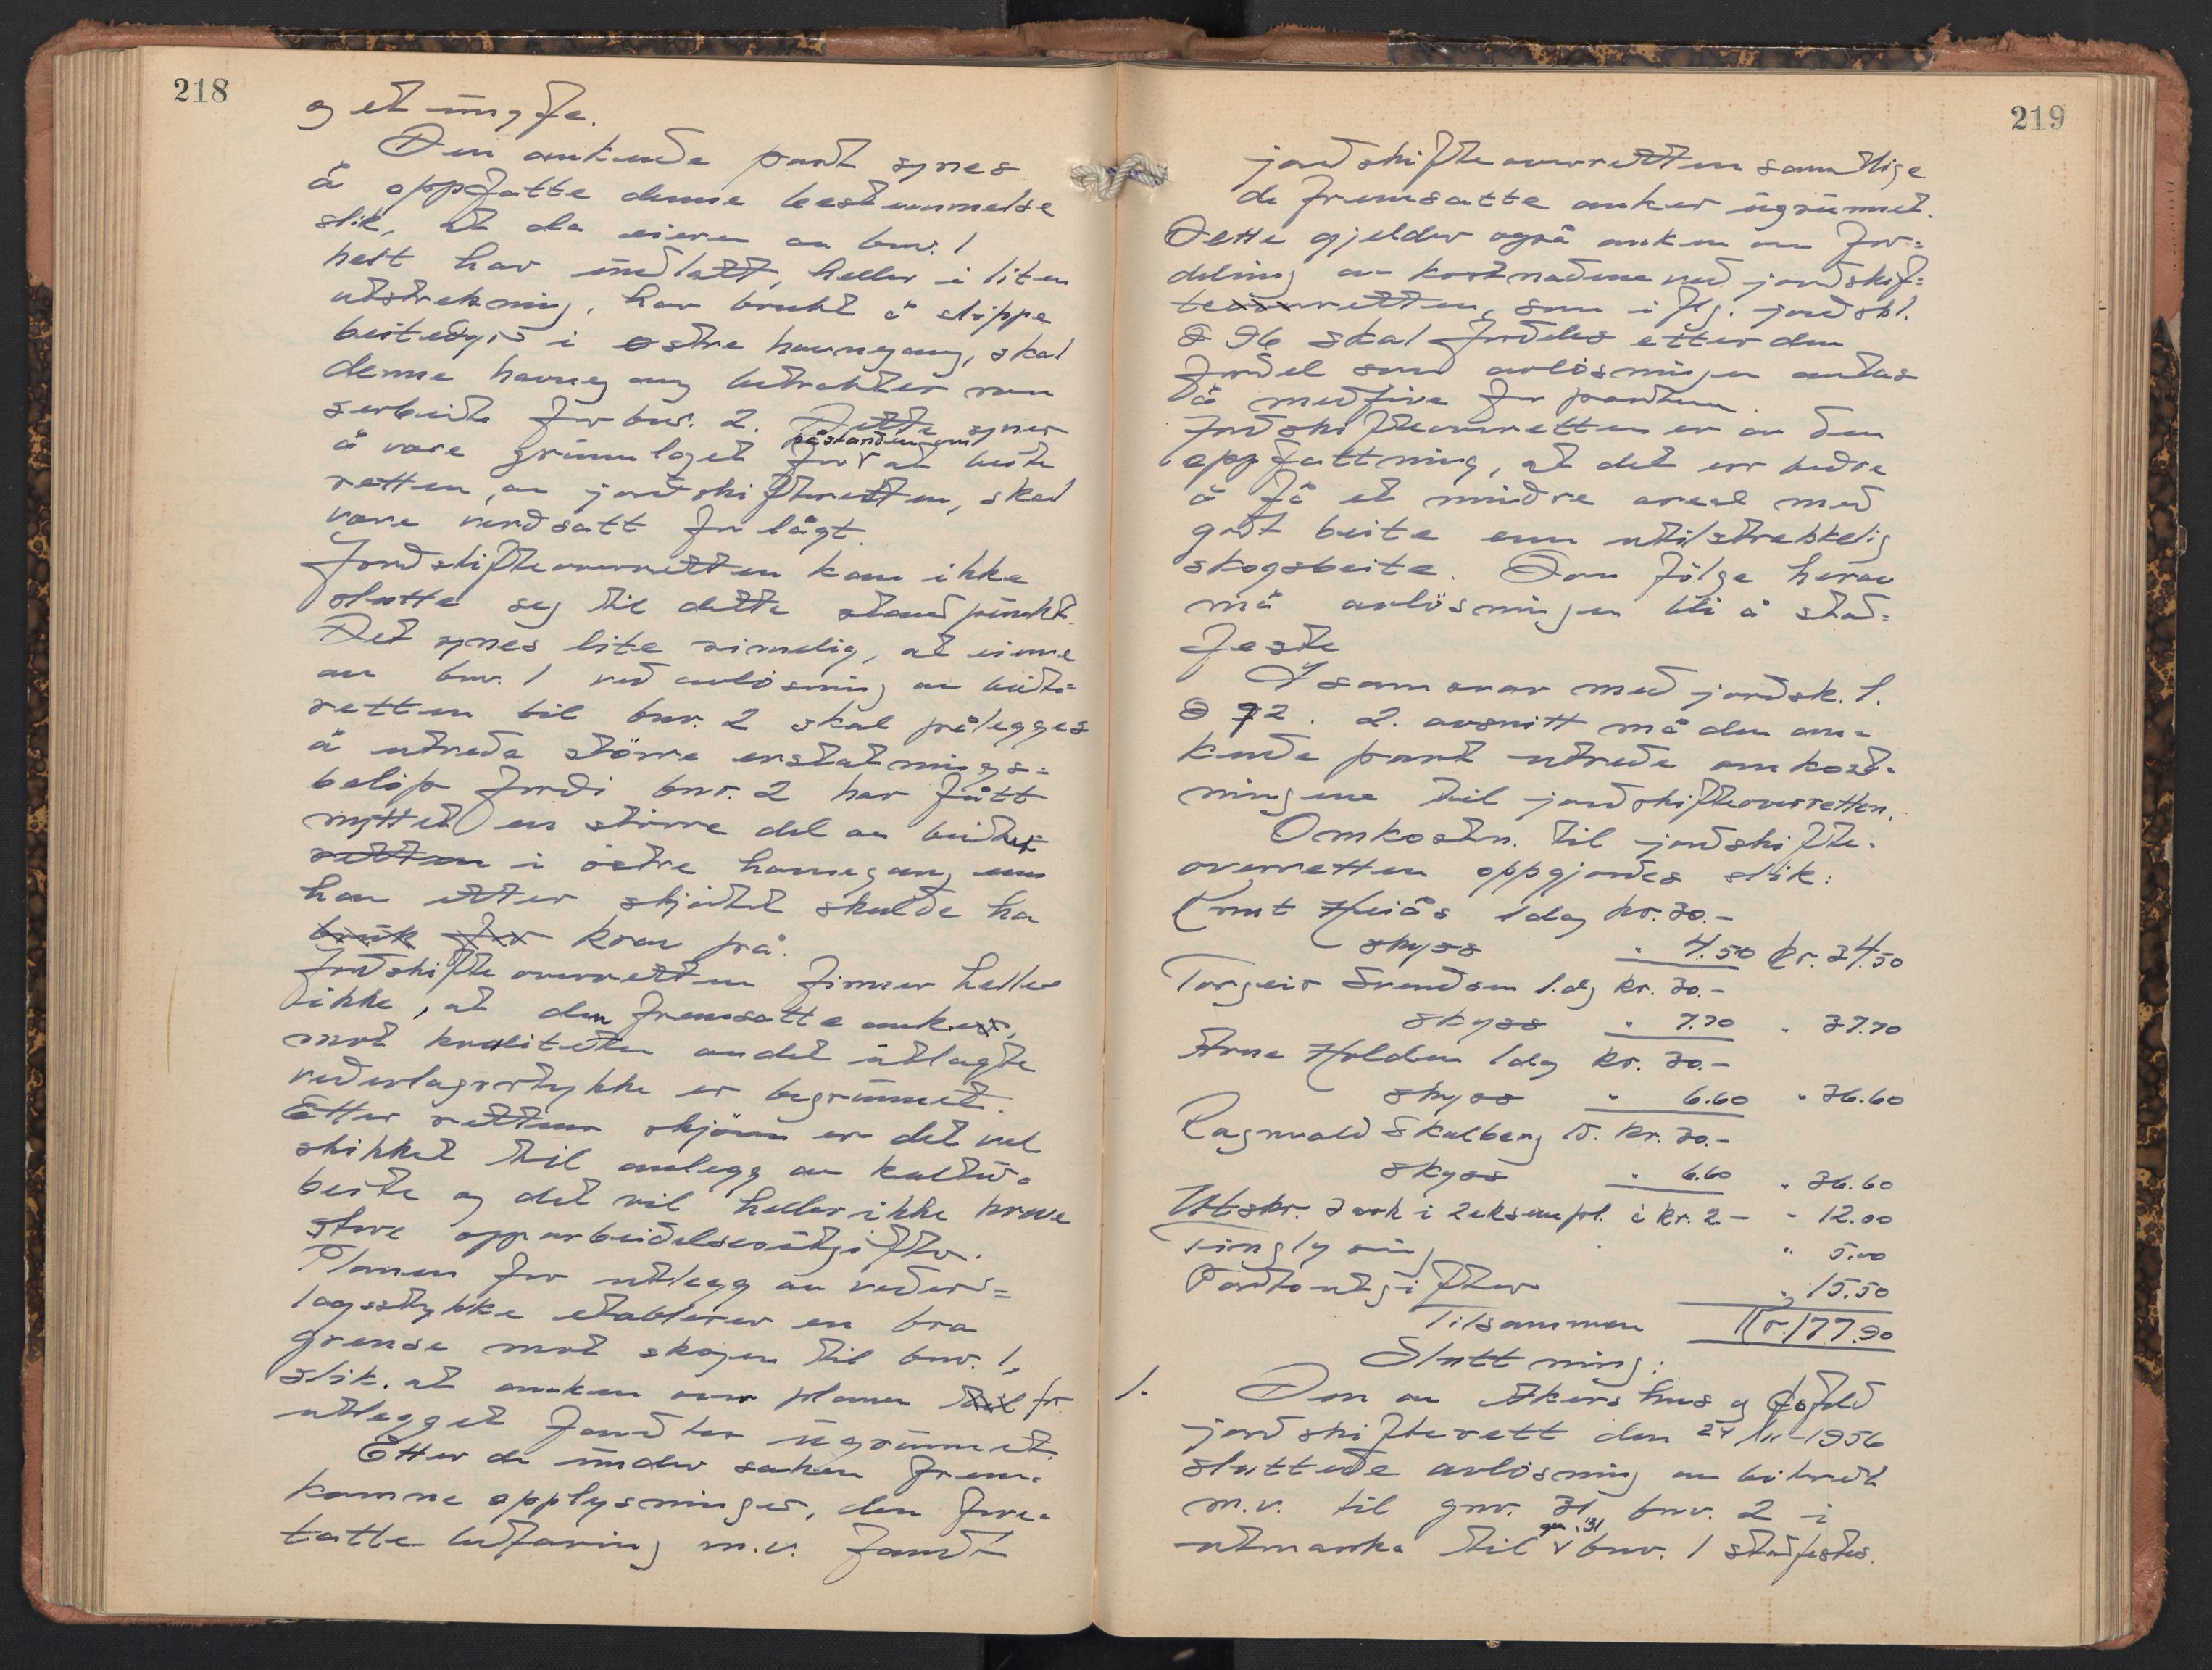 218
og et ungfe.
Den ankende part synes
å oppfatte denne bestemmelse
slik, at da eieren av bnr. 1
helt har unnlatt, heller i liten
utstrekning, har brukt å slippe
beitedyr i østre havnegang, skal
denne havnegang betraktes som
serbeite for bnr. 2. Dette synes
å være grunnlaget for påstanden om at beite
retten, av jordskifteretten, skal
være verdsatt for lågt.
Jordskifteoverretten kan ikke
slutte seg til dette standpunkt.
Det synes lite rimelig, at eierne
av bnr. 1 ved avløsning av beite=
retten til bnr. 2 skal pålegges
å utrede større erstatnings=
beløp fordi bnr. 2 har fått
nyttet en større del av beitet
retten i østre havnegang enn
han etter skjøtet skulde ha
bruk for krav på.
Jordskifteoverretten finner heller
ikke, at den fremsatte anker,
mot kvaliteten av det utlagte
vederlagsstykke er begrunnet.
Etter rettens skjønn er det vel
skikket til anlegg av kultur=
beite og det vil heller ikke kreve
store opparbeidelsesutgifter.
Planen for utlegg av veder=
lagsstykke etablerer en bra
grense mot skogen til bnr. 1,
slik, at anken over planen til for
utlegget fandtes ugrunnet.
Etter de under saken frem=
komne opplysninger, den fore=
tatte befaring m.v. fandt
219
jordskifteoverretten samtlige
de fremsatte anker ugrunnet.
Dette gjelder også anken om for=
deling av kostnadene ved jordskif=
teoverretten, som i flg. jordskl.
§ 96 skal fordeles etter den
fordel som avløsningen antas
å medføre for partene.
Jordskifteoverretten er av den
oppfattning, at det er bedre
å få et mindre areal med
godt beite enn utilstrekkelig
skogsbeite. Som følge herav
må avløsningen bli å stad=
feste
I samsvar med jordsk. l.
§ 92. 2. avsnitt må den an=
kende part utrede omkost=
ningene til jordskifteoverretten.
Omkostn. til jordskifte=
overretten oppgjordes slik:
Knut Heiås 1 dag kr. 30.-
skyss " 4.50 kr. 34.50
Torgeir Svendsen 1. dg kr. 30.-
skyss " 7.70 " 37.70
Arne Holden 1 dag kr. 30.-
skyss " 6.60 " 36.60
Ragnvald Skulberg 1d. kr. 30.-
skyss " 6.60 " 36.60
Utskr. 3 ark i 2 eksempl. à kr. 2.- " 12.00
Tinglysing " 5.00
Portoutgifter " 15.50
Tilsammen Kr. 177.90
Slutning:
1. Den av Akershus og Østfold
jordskifterett den 27/11-1956
sluttede avløsning av beiterett
m.v. til gnr. 31 bnr. 2 i
utmarka til gnr. 31 bnr. 1 stadfestes.